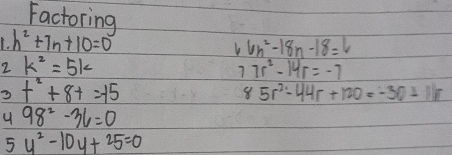 Factoring
1. h² + 7n + 10 = 0
2 k² = 5k
3 f² + 8t = 15
4 98² - 36 = 0
5 y² - 10y + 25 = 0
6 6n² - 18n - 18 = 6
7 7r² - 14r = -7
8 5r² - 44r + 120 = -30 + 11r